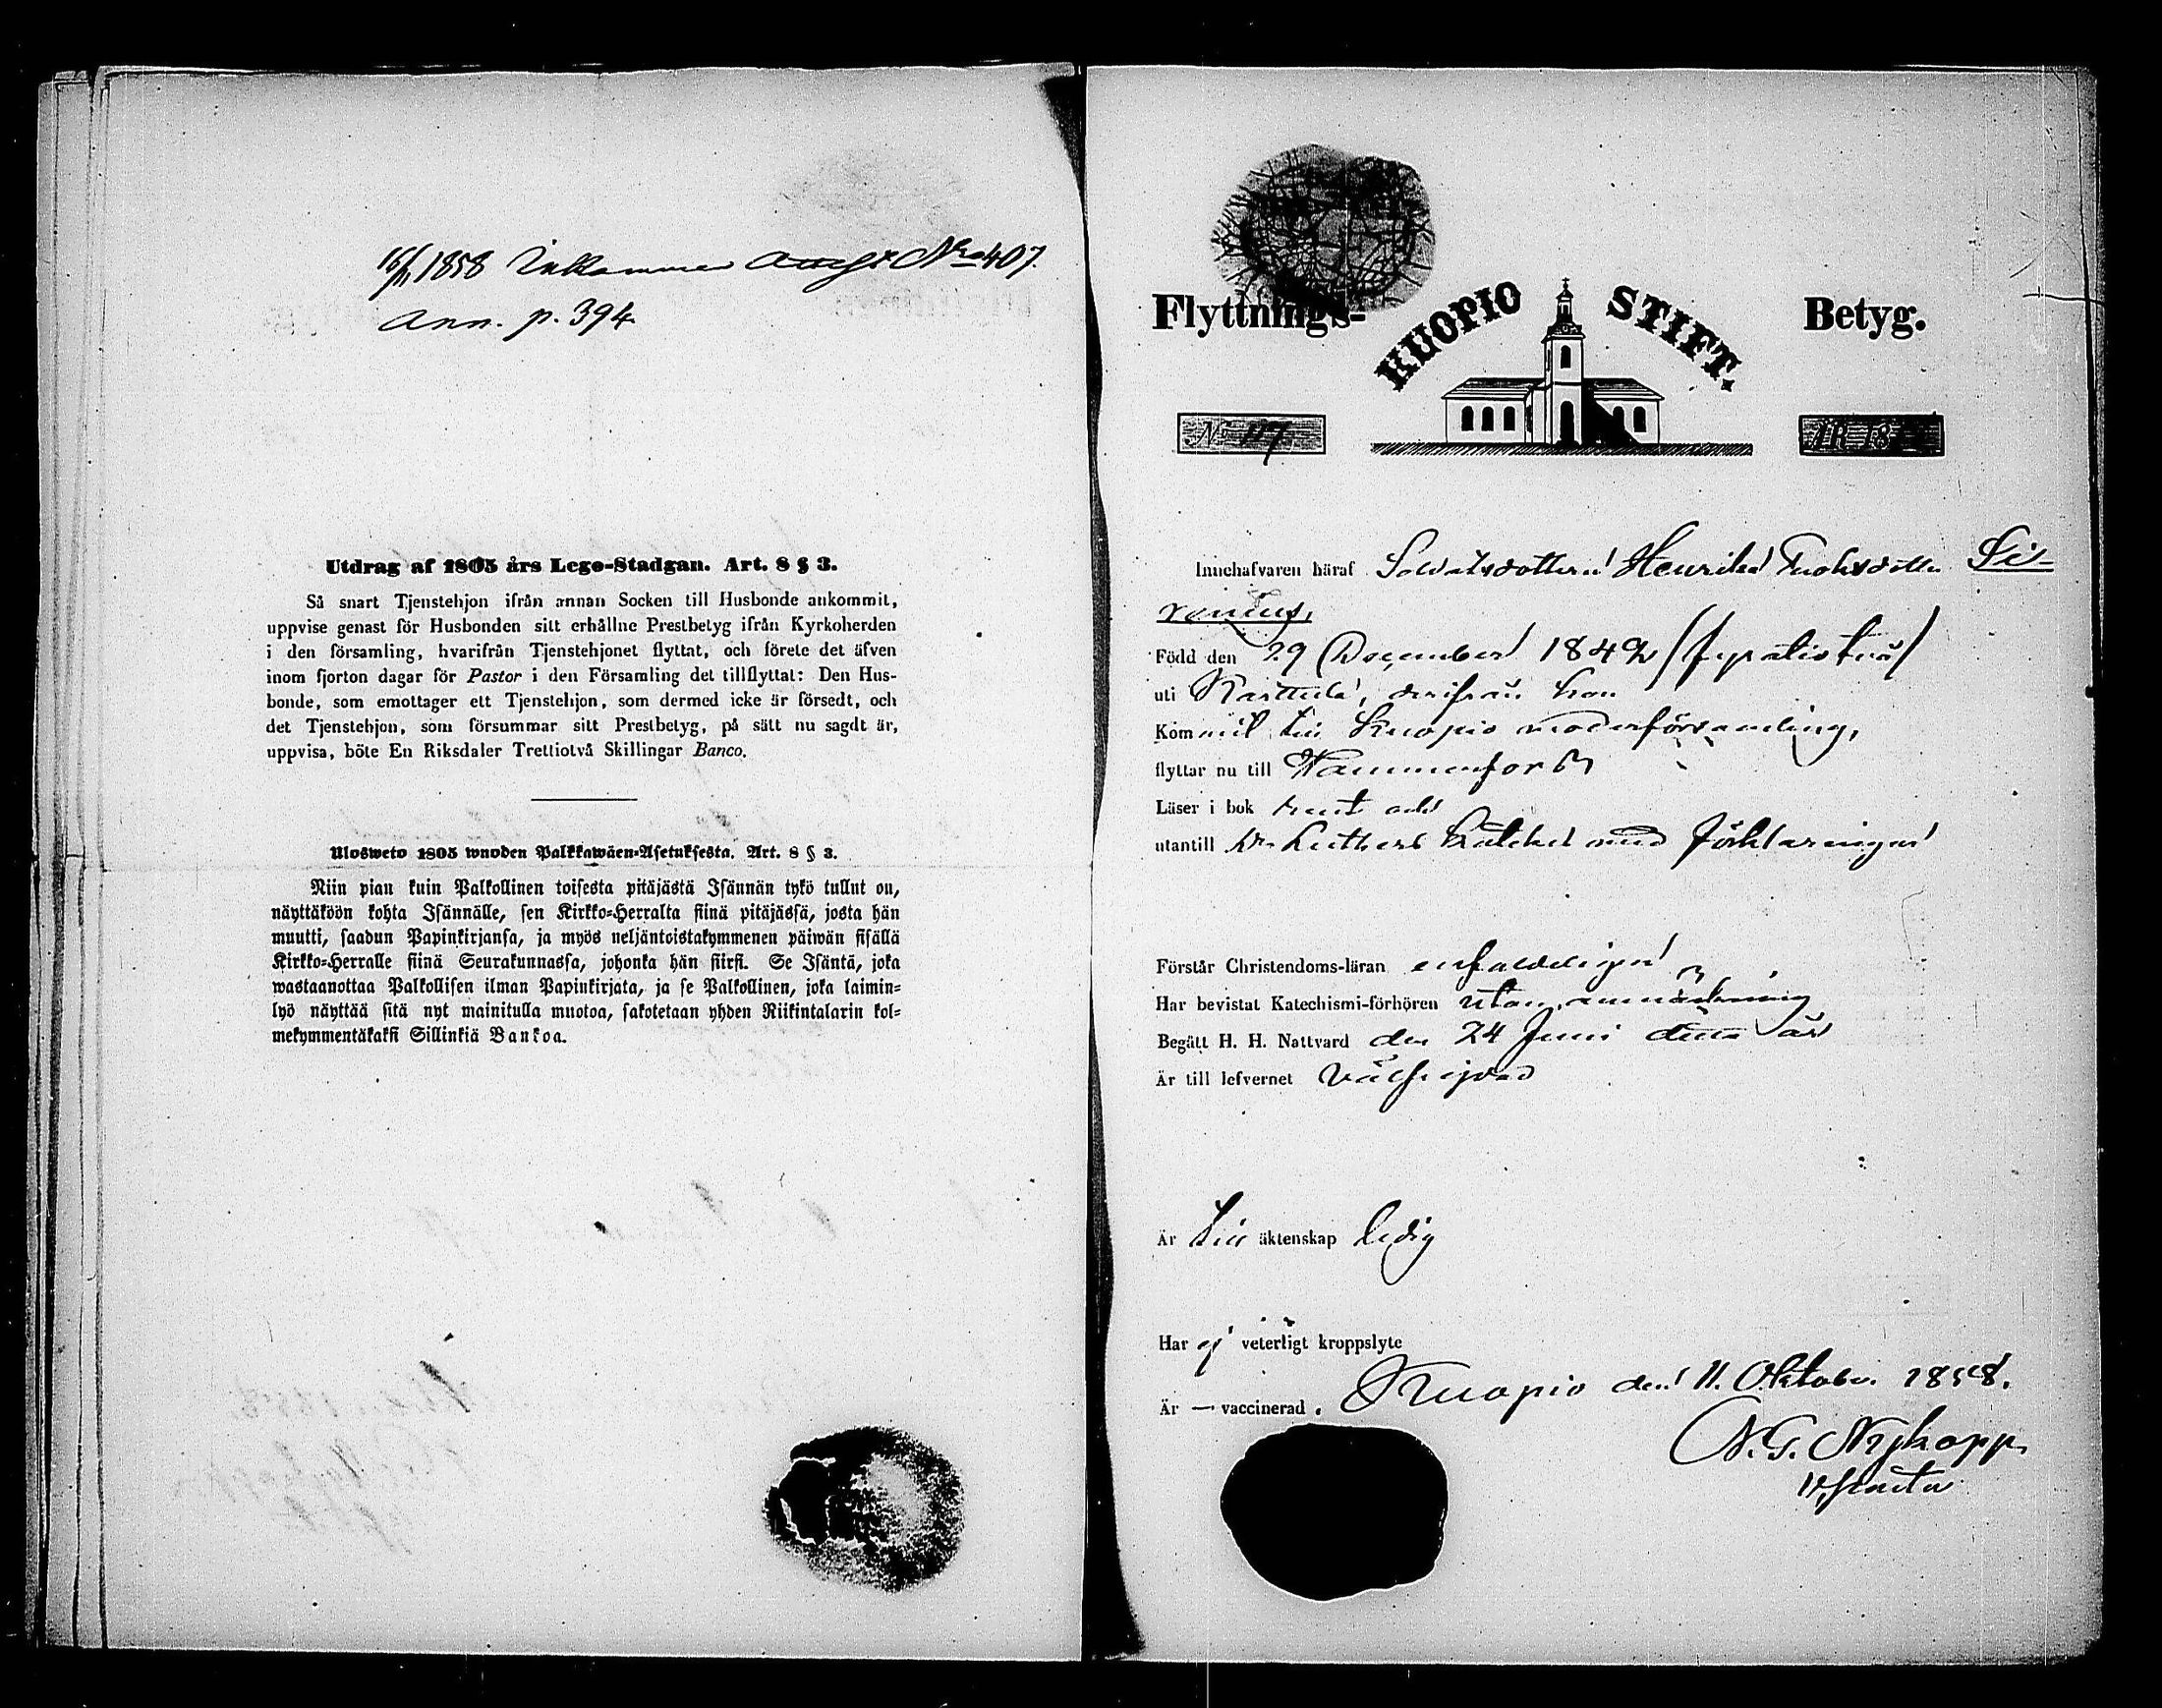 16/11 1858 Inkommen Attest Nro 407.
Ann. p. 394
Utdrag af 1805 års Lego-Stadgan. Art. 8 § 3.
Så snart Tjenstehjon ifrån annan Socken till Husbonde ankommit,
uppvise genast för Husbonden sitt erhållne Prestbetyg ifrån Kyrkoherden
i den församling, hvarifrån Tjenstehjonet flyttat, och förete det äfven
inom fjorton dagar för Pastor i den Församling det tillflyttat: Den Hus-
bonde, som emottager ett Tjenstehjon, som dermed icke är försedt, och
det Tjenstehjon, som försummar sitt Prestbetyg, på sätt nu sagdt är,
uppvisa, böte En Riksdaler Trettiotvå Skillingar Banco.
Ulosweto 1805 wuoden Palkkawäen-Asetuksesta. Art. 8 § 3.
Niin pian kuin Palkollinen toisesta pitäjästä Isännän tykö tullut on,
näyttäköön kohta Isännälle, sen Kirkko-Herralta siinä pitäjässä, josta hän
muutti, saadun Papinkirjansa, ja myös neljäntoistakymmenen päiwän sisällä
Kirkko-Herralle siinä Seurakunnassa, johonka hän siirsi. Se Isäntä, joka
wastaanottaa Palkollisen ilman Papinkirjata, ja se Palkollinen, joka laimin-
lyö näyttää sitä nyt mainitulla muotoa, sakotetaan yhden Riikintalarin kol-
mekymmentäkaksi Sillinkiä Bankoa.
Flyttnings- KUOPIO STIFT. Betyg.
No 117 ÅR 18
Innehafvaren häraf Soldatsdottern Henrika Enoksdotter Si-
renius,
Född den 29 December 1842
uti Karttula, derifrån hon
Kommit till Kuopio moderförsamling,
flyttar nu till
Läser i bok rent och
utantill Dr Luthers Kateches med förklaringen
Förstår Christendoms-läran enfaldeligen
Har bevistat Katechismi-förhören utan anmärkning
Begått H. H. Nattvard den 24 Juni detta år
Är till lefvernet välfrejdad
Är till äktenskap ledig
Har ej veterligt kroppslyte
Är — vaccinerad. Kuopio den 11. Oktober 1858.
N. G. Nykopp